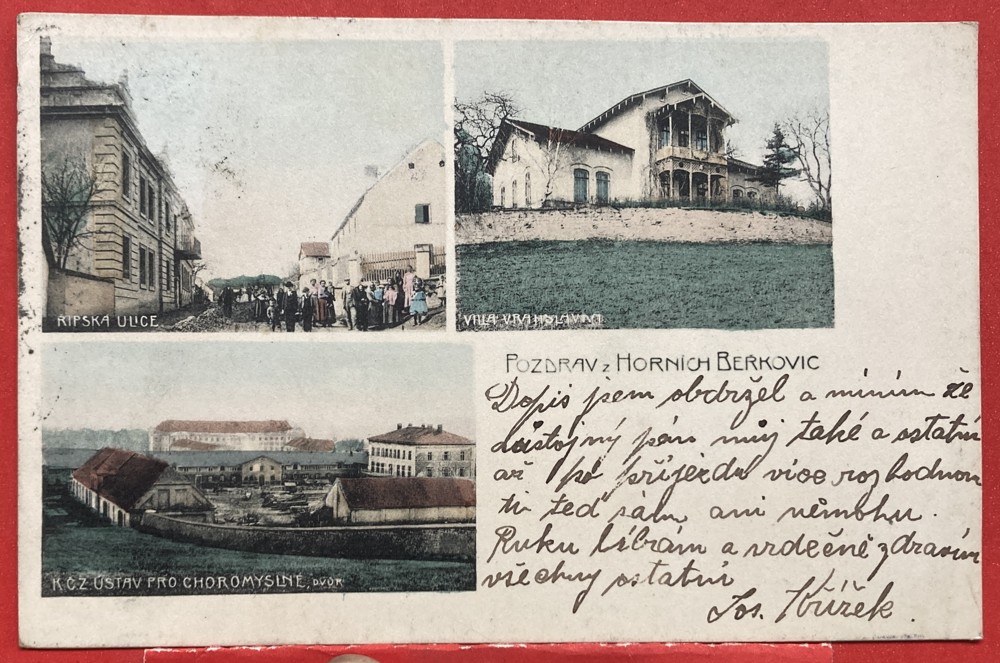 ŘIPSKÁ ULICE
VILLA VRAHSLAVINA
POZDRAV z HORNÍCH BEŘKOVIC
Dopis jsem obdržel a míním že
důstojný pán můj také a ostatní
až po příjezdu více rozhodnou
ti teď sám ani nemohu.
Ruku líbám a srdečně zdravím
všechny ostatní
Jos. Křížek.
K.C.Z. ÚSTAV PRO CHOROMYSLNÉ, DVOR